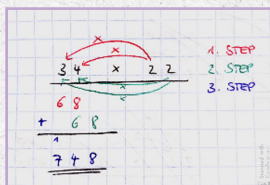 34 x 22
68
+ 68
1
748
1. STEP
2. STEP
3. STEP